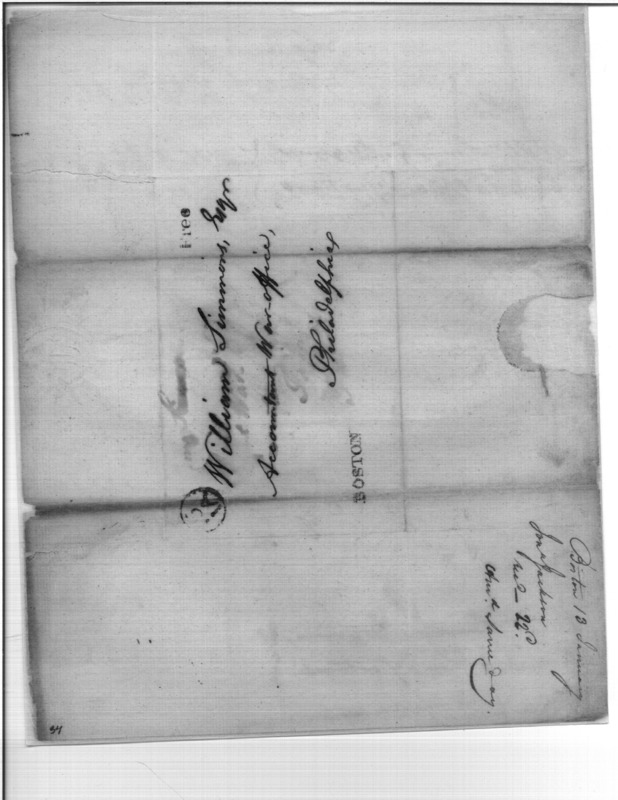 Free
William Simmons, Esqr
Accountant War-office,
Philadelphia
BOSTON
Boston 13 January
Jon Jackson
rec 22d
Answd. Same day.
34